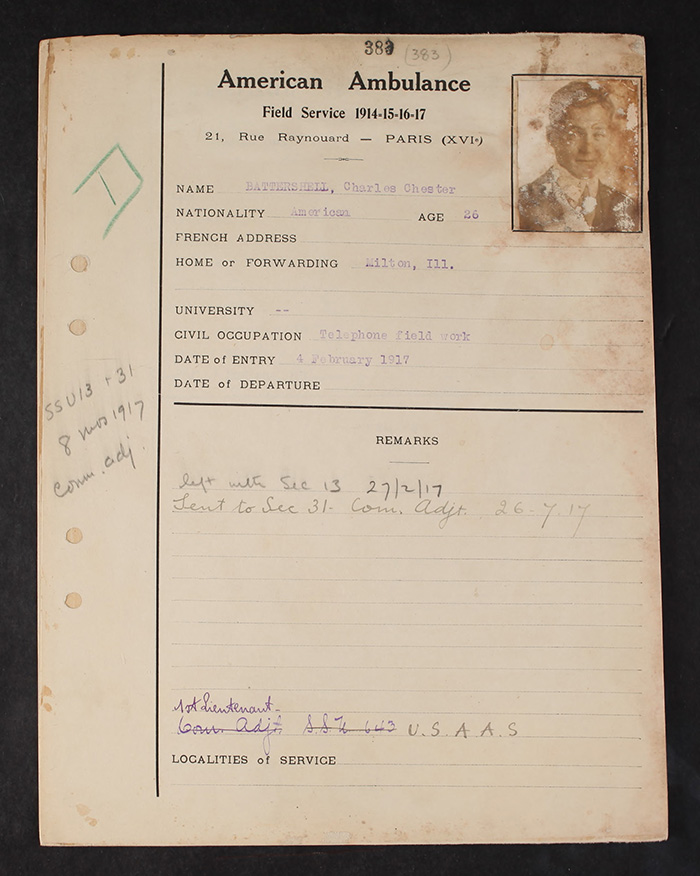 383 (383)
American Ambulance
Field Service 1914-15-16-17
21, Rue Raynouard — PARIS (XVIe)
NAME BATTERSHELL, Charles Chester
NATIONALITY American AGE 26
FRENCH ADDRESS
HOME or FORWARDING Milton, Ill.
UNIVERSITY --
CIVIL OCCUPATION Telephone field work
DATE of ENTRY 4 February 1917
DATE of DEPARTURE
D
SSU13 + 31
8 mos 1917
Comm. adj.
REMARKS
left with Sec 13 27/2/17
Sent to Sec 31- Com. Adjt. 26-7-17
1st Lieutenant-
Com. Adjt. S.S.U 643 U.S.A.A.S
LOCALITIES of SERVICE